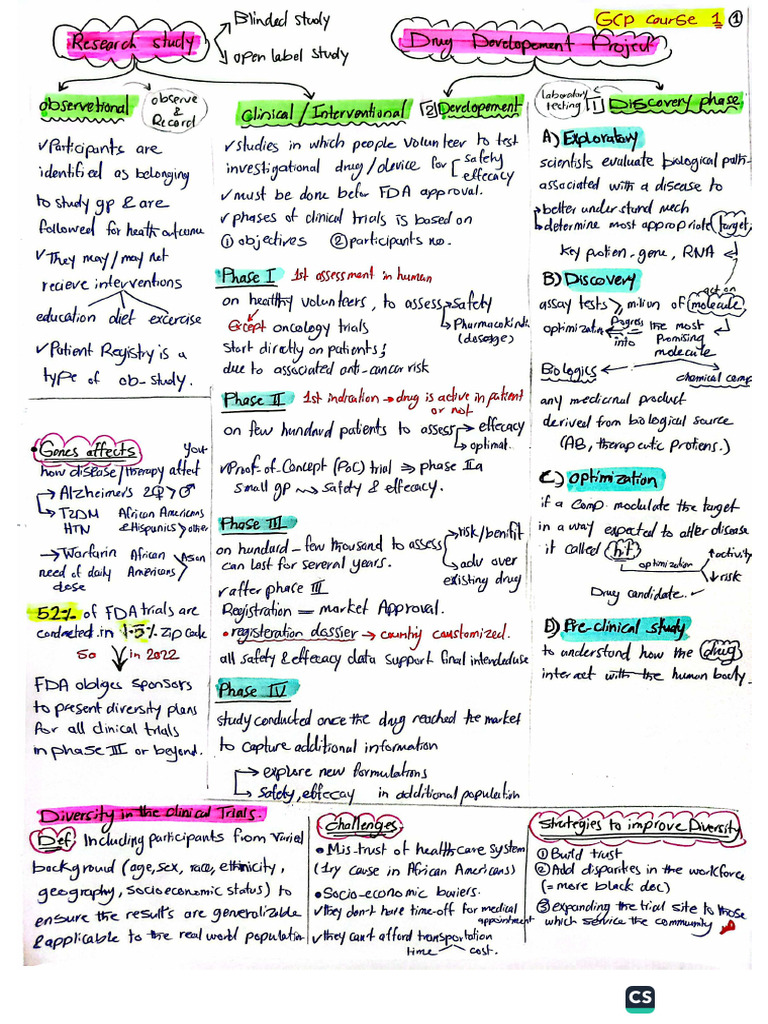 GCP course 1 ①
Research study
Blinded study
open label study
Drug Developement Project
observetional
observe
& Record
✓Participants are
identified as belonging
to study gp & are
followed for health outcome
✓They may/may not
recieve interventions
education diet excercise
✓Patient Registry is a
type of ob-study.
Clinical/Interventional
✓studies in which people volunteer to test
investigational drug/device for safety
effecacy
✓must be done befor FDA approval.
✓phases of clinical trials is based on
① objectives ② participants no.
Phase I 1st assessment in human
on healthy volunteers, to assess safety
Pharmacokinetic
(dosage)
Except oncology trials
start directly on patients
due to associated anti-cancer risk
Phase II 1st indication → drug is active in patient
or not
on few hundard patients to assess effecacy
optimal.
✓Proof-of-Concept (PoC) trial ⇒ phase IIa
small gp → safety & effecacy.
Phase III
on hundard - few thousand to assess risk/benifit
can last for several years. adv over
existing drug
✓after phase III
Registration = market Approval.
• registeration dossier → country caustomized.
all safety & effecacy data support final intended use
Phase IV
study conducted once the drug reached the market
to capture additional information
→ explore new formulations
→ Safety, effecay in additional population
2 Developement
laboratory
testing
1 Discovery phase
A) Exploratory
scientists evaluate biological path-
associated with a disease to
better understand mech
determine most appropriate target
Key protien, gene, RNA
B) Discovery
act on
assay tests > milion of molecule
optimization Progress into the most
Promising
molecule
Biologics
chemical comp
any medicinal product
derived from biological source
(AB, therapeutic Protiens.)
C) optimization
if a comp modulate the target
in a way expected to alter disease
it called hit
optimization ↑activity
↓risk
Drug candidate.
D) Pre-clinical study
to understand how the drug
interact with the human body.
• Genes affects your
how disease/therapy affect
→ Alzheimer's 2♀>♂
→ T2DM African Americans
HTN & Hispanics > other
→ Warfarin African Asian
need of daily Americans >
dose
52% of FDA trials are
conducted in 1-3% zip code
So in 2022
FDA obliges sponsors
to present diversity plans
for all clinical trials
in phase III or beyond.
Diversity in the clinical Trials.
Def. Including participants from Varied
background (age, sex, race, ethinicity,
geography, socioeconomic status) to
ensure the results are generalizable
& applicable to the real world population
Challenges
• Mistrust of healthcare system
(1ry cause in African Americans)
• Socio-economic bariers.
✓they don't have time-off for medical
appointment
✓they can't afford transportation
time cost.
Strategies to improve Diversity
① Build trust
② Add disparities in the workforce
(= more black doc)
③ expanding the trial site to those
which service the community
CS